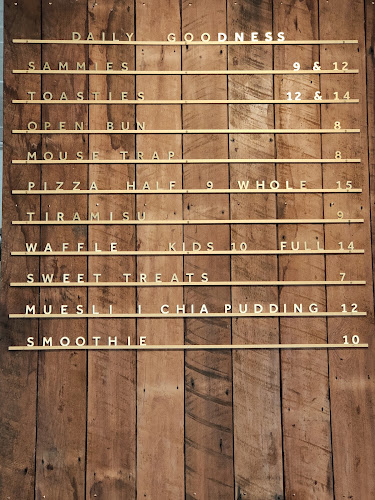 DAILY GOODNESS
SAMMIES 9 & 12
TOASTIES 12 & 14
OPEN BUN 8
MOUSE TRAP 8
PIZZA HALF 9 WHOLE 15
TIRAMISU 9
WAFFLE KIDS 10 FULL 14
SWEET TREATS 7
MUESLI | CHIA PUDDING 12
SMOOTHIE 10